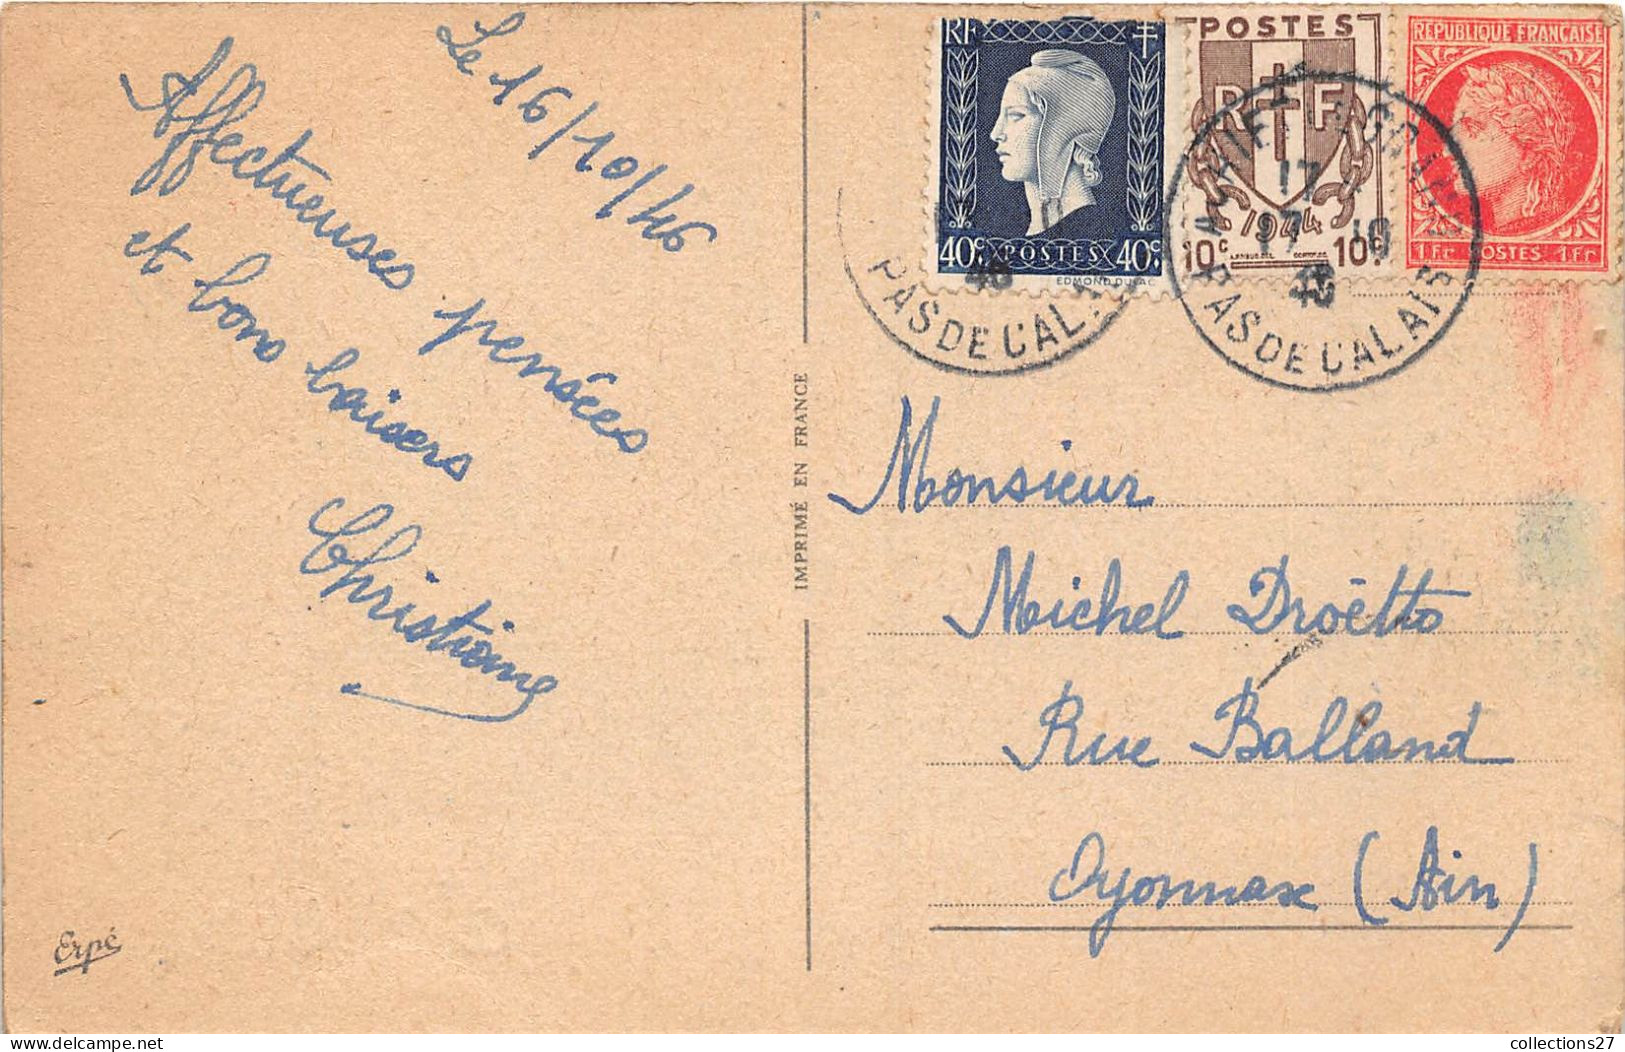 Le 16/10/46
Affectueuses pensées
et bons baisers
Christiane
Erpé
IMPRIMÉ EN FRANCE
RF
40c POSTES 40c
EDMOND DULAC
POSTES
RF
1944
10c 10c
RÉPUBLIQUE FRANÇAISE
1 Fr POSTES 1 Fr
PAS DE CALAIS
17
17 10
46
PAS DE CALAIS
Monsieur
Michel Droëtto
Rue Balland
Oyonnax (Ain)
collections27